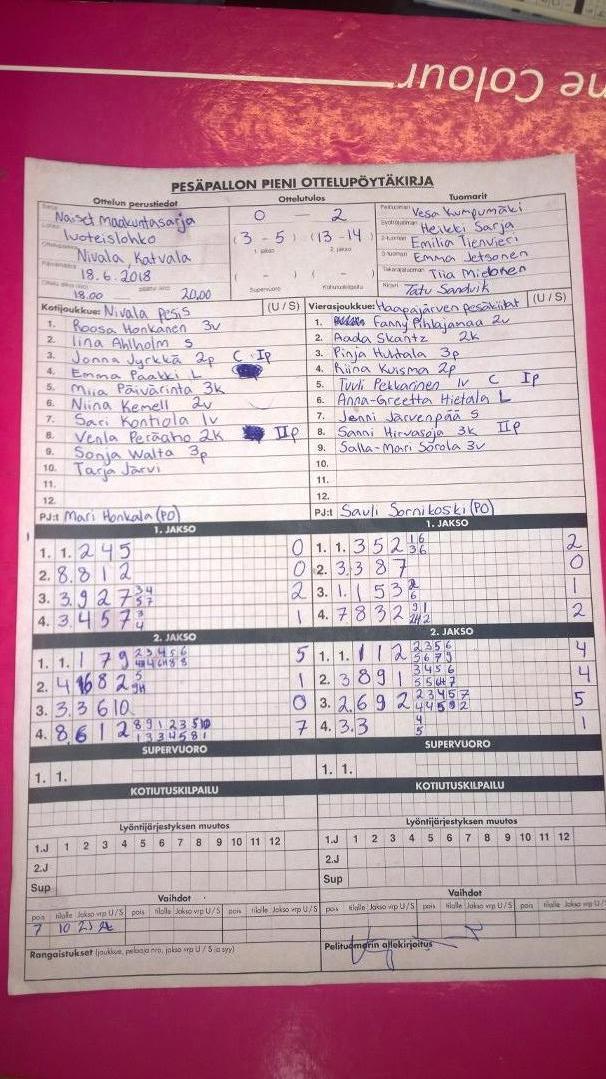 ne Colour
PESÄPALLON PIENI OTTELUPÖYTÄKIRJA
Ottelun perustiedot
Naiset maakuntasarja
luoteislohko
Nivala Katvala
18.6.2018
18.00 20.00
Ottelutulos
0 — 2
(3 - 5) (13 - 14)
1. jakso 2. jakso
( - ) ( - )
Supervuoro Kotiutuskilpailu
Tuomarit
Pelituomari Vesa Kumpumäki
Syöttötuomari Heikki Sarja
2-tuomari Emilia Tienvieri
3-tuomari Emma Jetsonen
Takarajatuomari Tiia Mietonen
Kirjuri Tatu Sandvik
Kotijoukkue: Nivala pesis (U / S)
1. Roosa Honkanen 3v
2. Iina Ahlholm S
3. Jonna Jyrkkä 2p C Ip
4. Emma Paakki L
5. Miia Päivärinta 3k
6. Niina Kemell 2v
7. Sari Kontiola 1v
8. Venla Peräaho 2k IIp
9. Sonja Walta 3p
10. Tarja Järvi
11.
12.
PJ:t Mari Honkala (PO)
Vierasjoukkue: Haapajärven pesäkiilat (U / S)
1. Fanny Pihlajamaa 2v
2. Aada Skantz 2k
3. Pinja Huhtala 3p
4. Riina Kuisma 2p
5. Tuuli Pekkarinen 1v C Ip
6. Anna-Greetta Hietala L
7. Jenni Järvenpää S
8. Sanni Hirvasoja 3k IIp
9. Salla-Mari Sorola 3v
10.
11.
12.
PJ:t Sauli Sornikoski (PO)
1. JAKSO
1. 1. 2 4 5 0
2. 8. 8 1 2 0
3. 3. 9 2 7 3 4 5 7 2
4. 3. 4 5 7 3 4 1
2. JAKSO
1. 1. 1 7 9 5
2. 4 1
3. 3. 3 6 10. 0
4. 8. 6 1 2 7
SUPERVUORO
1. 1.
KOTIUTUSKILPAILU
Lyöntijärjestyksen muutos
1.J 1 2 3 4 5 6 7 8 9 10 11 12
2.J
Sup
Vaihdot
pois tilalle Jakso vrp U / S pois tilalle Jakso vrp U / S pois tilalle Jakso vrp U / S
7 10 2J
Rangaistukset (joukkue, pelaaja nro, jakso vrp U / S ja syy)
1. JAKSO
1. 1. 3 5 2 1 6 3 6 2
2. 3. 3 8 7 0
3. 1. 1 5 3 1
4. 7 8 3 2 2
2. JAKSO
1. 1. 1 1 2 2 3 5 6 5 6 7 9 4
2. 3 8 9 1 3 4 5 6 4
3. 2. 6 9 2 2 3 4 5 7 5
4. 3. 3 4 5 1
SUPERVUORO
1. 1.
KOTIUTUSKILPAILU
Lyöntijärjestyksen muutos
1.J 1 2 3 4 5 6 7 8 9 10 11 12
2.J
Sup
Vaihdot
pois tilalle Jakso vrp U / S pois tilalle Jakso vrp U / S pois tilalle Jakso vrp U / S
Pelituomarin allekirjoitus